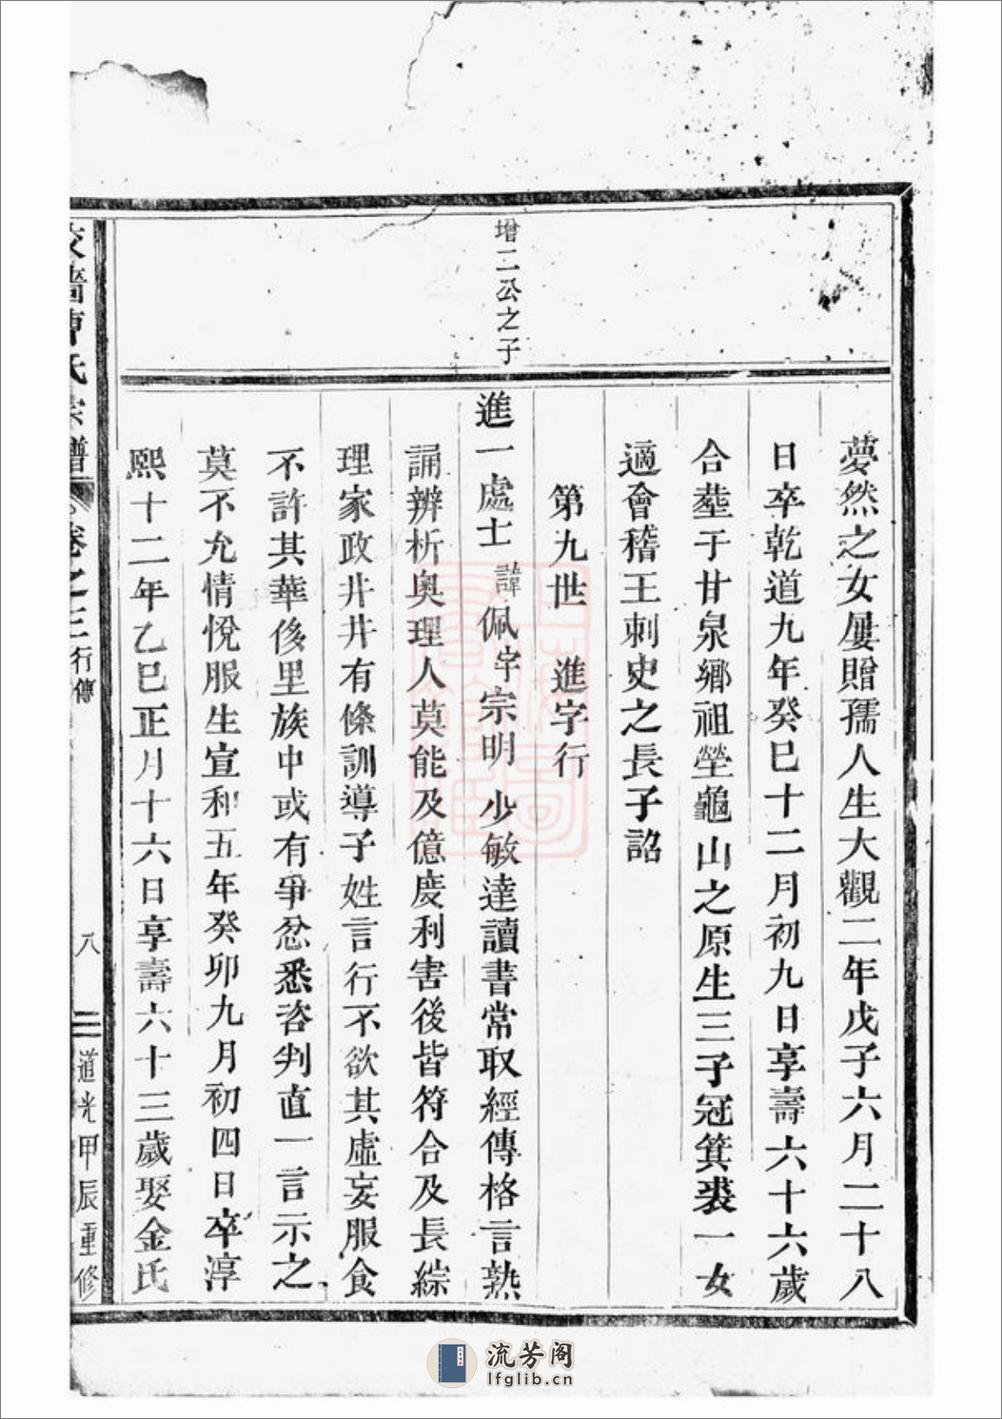 夢然之女屢贈孺人生大觀二年戊子六月二十八
日卒乾道九年癸巳十二月初九日享壽六十六歲
合塟于甘泉鄉祖塋龜山之原生三子冠箕裘一女
適會稽王刺史之長子詔
第九世 進字行
增二公之子
進一處士 諱佩字宗明 少敏達讀書常取經傳格言熟
誦辨析奧理人莫能及億度利害後皆符合及長綜
理家政井井有條訓導子姓言行不欲其虛妄服食
不許其華侈里族中或有爭忿悉咨判直一言示之
莫不允情悅服生宣和五年癸卯九月初四日卒淳
熙十二年乙巳正月十六日享壽六十三歲娶金氏
氏宗譜 卷之三 行傳 八 道光甲辰重修
流芳阁
lfglib.cn